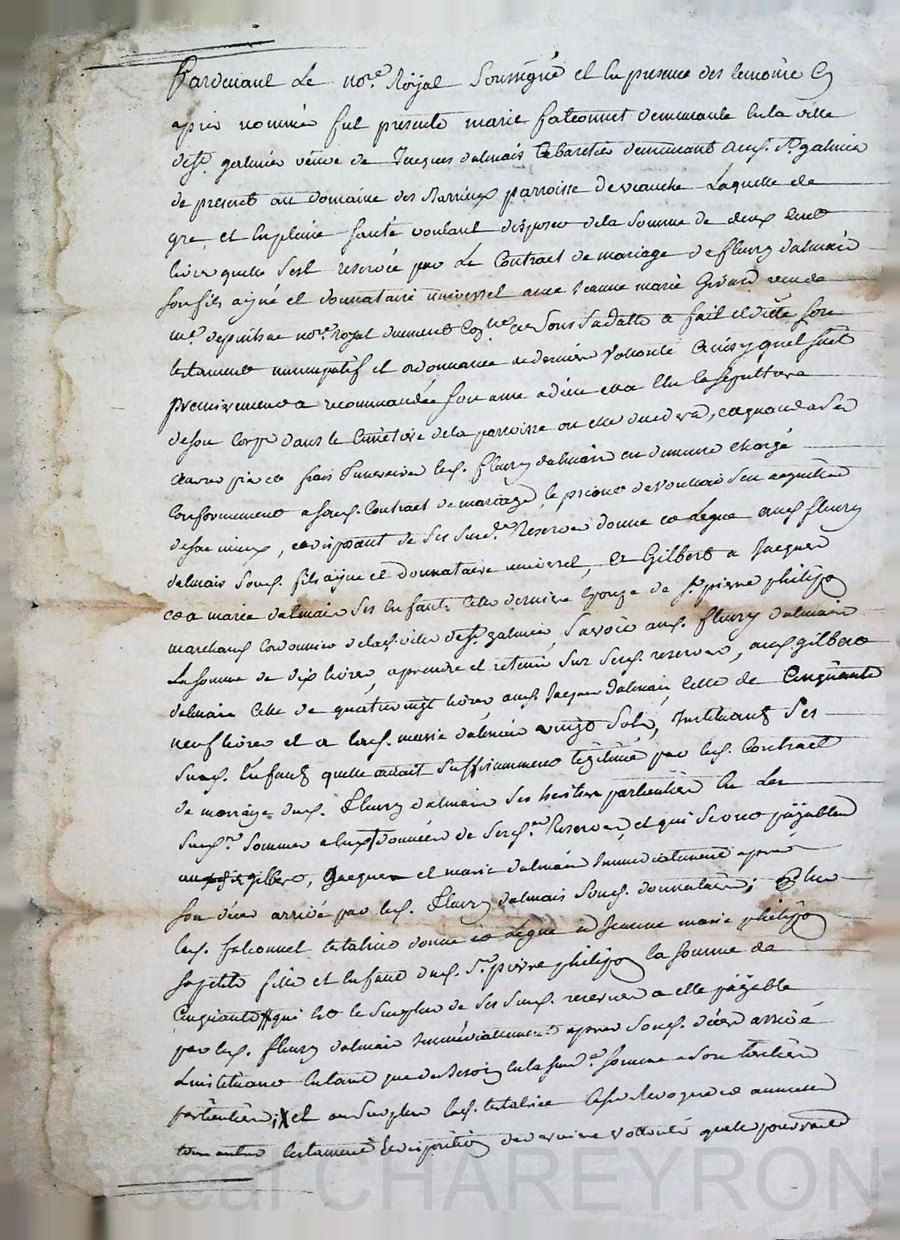 Pardevant Le no.re Royal Soussigné et En presence des temoins Cy
apres nommés fut presente marie falconnet demeurante En la ville
de st. galmier veuve de Jacques dalmais Cabaretier demeurant aud. st. galmier
de present au domaine des parroisse de veauche Laquelle de
gre et En pleine santé voulant disposer de la somme de deux Cent
livres quelle s'est reservée par Le Contract de mariage de fleury dalmais
son fils ayné et donnataire universel avec Jeanne marie Girard receu
m.e no.re royal Sous Sa datte a fait et dicté son
testament nuncupatif et ordonnance de derniere volonté Ainsy quel suit
premierement a recommandé son ame a dieu et a Elu la sepulture
de son Corps dans le Cimetiere de la parroisse ou elle decedera, et quand a ses
œuvres pies et frais funeraires led. fleury dalmais en demeure chargé
Conformement a sond. Contract de mariage, le priant de vouloir s'en acquitter
de son mieux, et disposant de ses susd.es Reserves donne et Legue aud. fleury
dalmais sond. fils ayné et donnataire universel, et Gilbert a Jacques
et a marie dalmais ses Enfants Cette derniere Epouse de Sr. pierre philipon
marchand Cordonnier de lad. ville de st. galmier, Savoir aud. fleury dalmais
La somme de dix livres, a prendre et retenir sur sesd. reserves, aud. gilbert
dalmais Celle de quatre vingt livres aud. Jacques dalmais Celle de Cinquante
neuf livres et a lad. marie dalmais vingt sols, Instituant Ses
susd. Enfants quelle avait suffisamment légitimé par led. Contract
de mariage dud. fleury dalmais Ses heritiers particuliers En Les
susd.es sommes a Eux donnée de sesd.es Reserves, et qui seront payables
gilbert, Jacques et marie dalmais Immediatement après
son déces arrivé par led. fleury dalmais sond. donnataire; Plus
lad. falconnet testatrice donne et Legue a Jeanne marie philipon
sa petite fille et Enfant dud. Sr. pierre philipon la somme de
Cinquante qui est le surplus de ses susd. reserves a elle payable
par led. fleury dalmais Immediatement apres sond. déces arrivé
L'instituant En tant que de Besoin En la susd.e somme son heritiere
particuliere; et au surplus lad. testatrice Casse Revoque et annulle
tous autres testaments et disposition de derniere volonté quelle pourrait
Pascal CHAREYRON